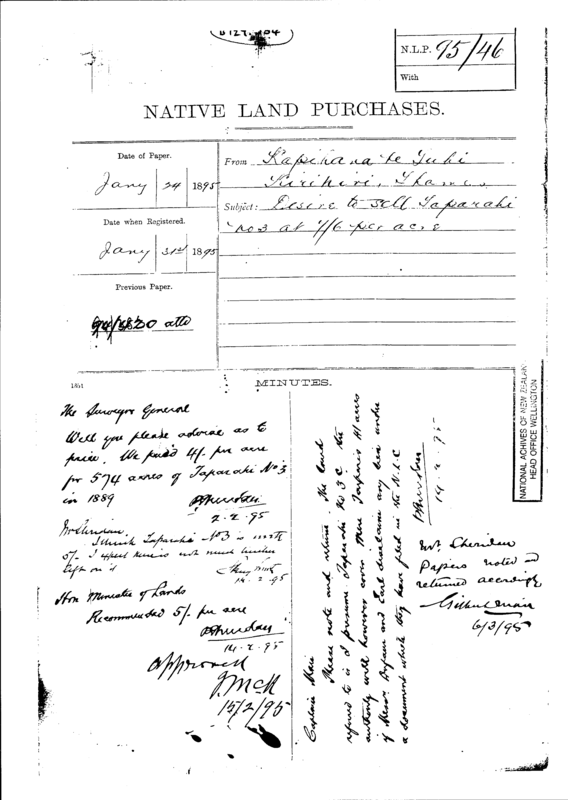 D127.104
N.L.P. 95/46
With
NATIVE LAND PURCHASES.
Date of Paper.
Jany 24 1895
Date when Registered.
Jany 31st 1895
Previous Paper.
atta
From Rapihana te Tuhi
Kirikiri, Thames
Subject: Desire to sell Taparahi
No 3 at 7/6 per acre
1351
MINUTES.
The Surveyor General
Will you please advise as to
price. We paid 4/. per acre
for 574 acres of Taparahi No 3
in 1889
P Sheridan
2.2.95
Mr Sheridan.
I think Taparahi No 3 is worth
5/- I expect there is not much timber
left on it
14.2.95
Hon Minister of Lands
Recommended 5/- per acre
P Sheridan
14.2.95
Approved
J McK
15/2/95
Captain Mair
Please note and return. The land
referred to is I presume Taparahi No 3C the
authority will however cover Mere Taipari's 141 acres
if Messrs and Earl disclaim any lien under
a document which they have filed in the N.L.C
P Sheridan
14.2.95
Mr Sheridan
Papers noted and
returned accordingly
Gilbert Mair
6/3/95
NATIONAL ACHIVES OF NEW ZEALAND
HEAD OFFICE WELLINGTON